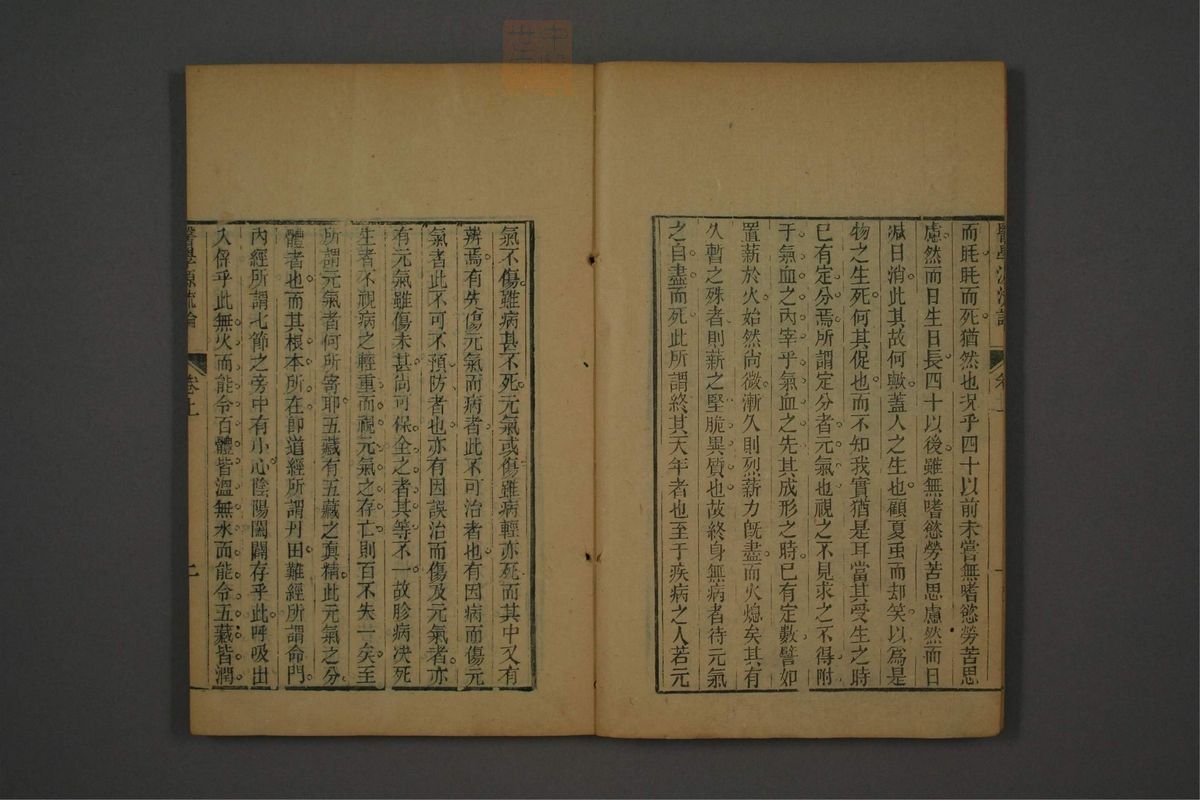 醫學源流論
卷上
一
而眊眊而死猶然也况乎四十以前未嘗無嗜慾勞苦思
慮然而日生日長四十以後雖無嗜慾勞苦思慮然而日
減日消此其故何歟蓋人之生也顧夏虫而却笑以爲是
物之生死何其促也而不知我實猶是耳當其受生之時
已有定分焉所謂定分者元氣也視之不見求之不得附
于氣血之內宰乎氣血之先其成形之時已有定數譬如
置薪於火始然尚微漸久則烈薪力旣盡而火熄矣其有
久暫之殊者則薪之堅脆異質也故終身無病者待元氣
之自盡而死此所謂終其天年者也至于疾病之人若元
氣不傷雖病甚不死元氣或傷雖病輕亦死而其中又有
辨焉有先傷元氣而病者此不可治者也有因病而傷元
氣者此不可不預防者也亦有因誤治而傷及元氣者亦
有元氣雖傷未甚尚可保全之者其等不一故胗病决死
生者不視病之輕重而視元氣之存亡則百不失一矣至
所謂元氣者何所寄耶五藏有五藏之眞精此元氣之分
體者也而其根本所在卽道經所謂丹田難經所謂命門
內經所謂七節之旁中有小心陰陽闔闢存乎此呼吸出
入係乎此無火而能令百體皆溫無水而能令五藏皆潤
醫學源流論
卷上
二